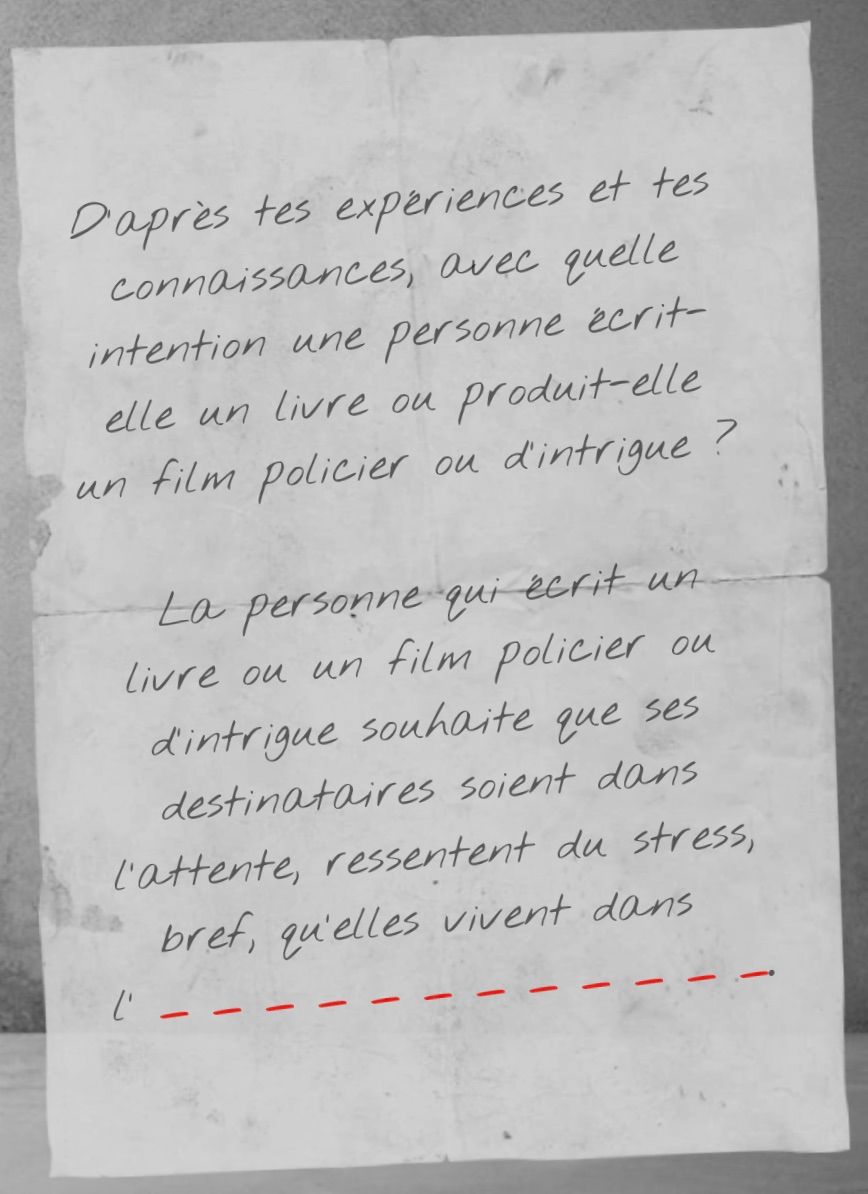 D'après tes expériences et tes
connaissances, avec quelle
intention une personne écrit-
elle un livre ou produit-elle
un film policier ou d'intrigue ?
La personne qui écrit un
livre ou un film policier ou
d'intrigue souhaite que ses
destinataires soient dans
l'attente, ressentent du stress,
bref, qu'elles vivent dans
l' _ _ _ _ _ _ _ _ _ _ _ _.